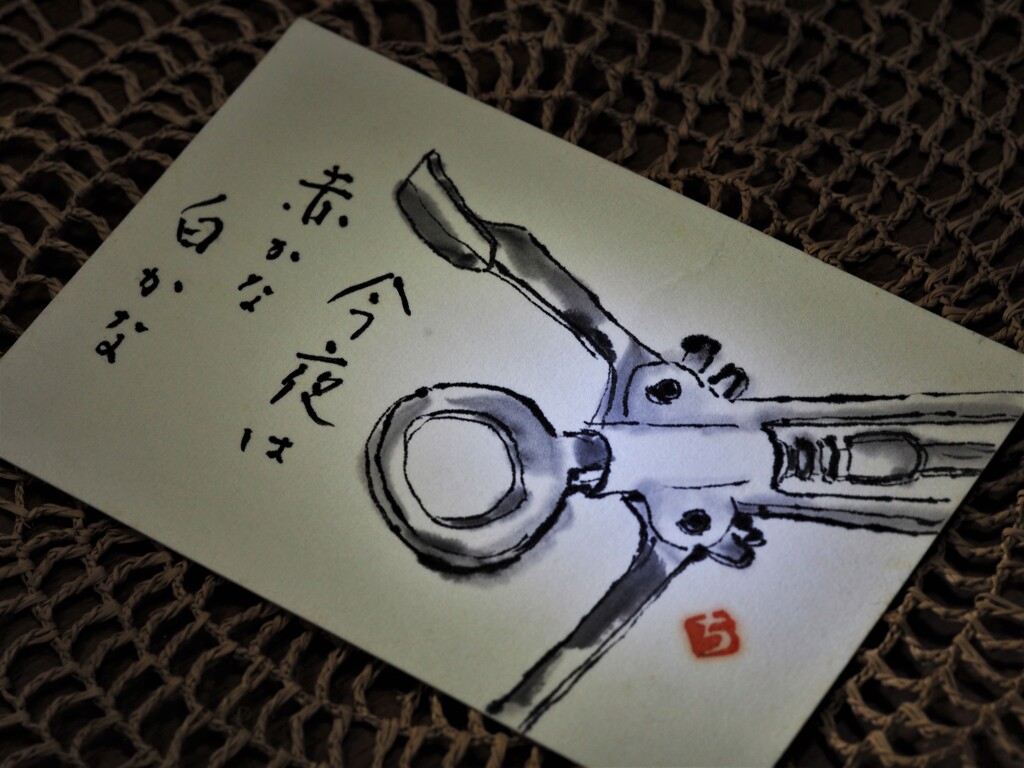 今夜は
赤かな
白かな
ち